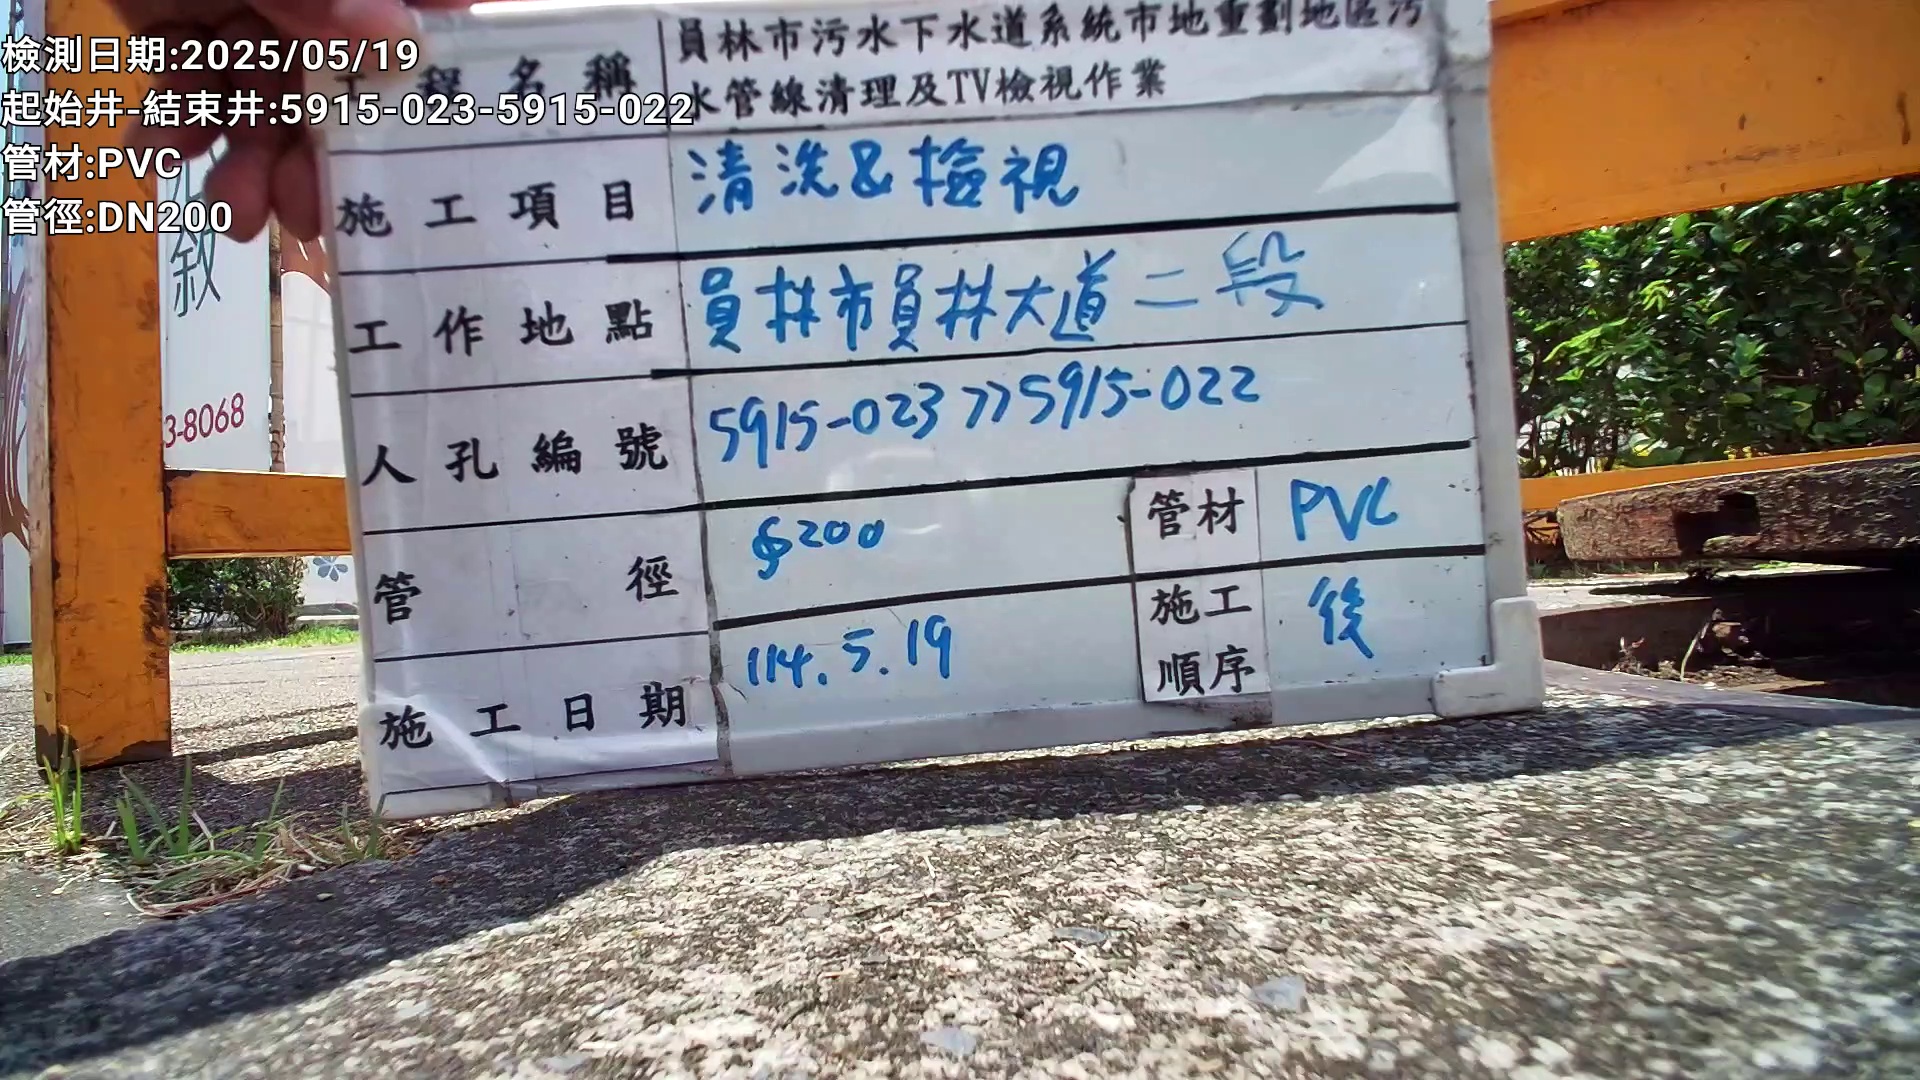 檢測日期:2025/05/19
起始井-結束井:5915-023-5915-022
管材:PVC
管徑:DN200
工程名稱
員林市污水下水道系統市地重劃地區污
水管線清理及TV檢視作業
施工項目
清洗&檢視
工作地點
員林市員林大道二段
人孔編號
5915-023>>5915-022
管徑
∮200
管材
PVC
施工日期
114.5.19
施工
順序
後
敘
3-8068